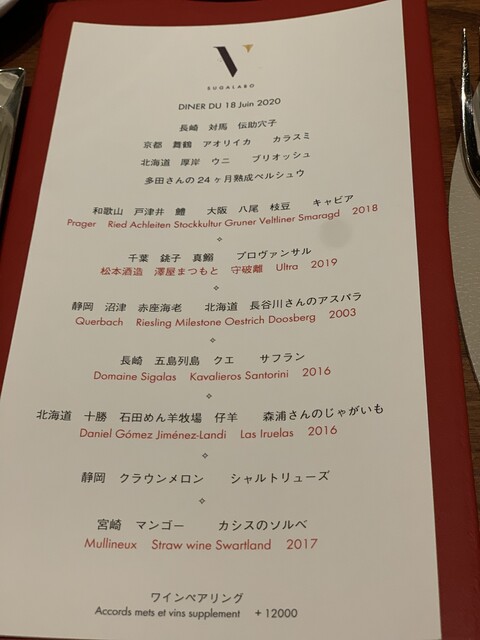 V
SUGALABO
DINER DU 18 Juin 2020
長崎 対馬 伝助穴子
京都 舞鶴 アオリイカ カラスミ
北海道 厚岸 ウニ ブリオッシュ
多田さんの24ヶ月熟成ペルシュウ
和歌山 戸津井 鱧 大阪 八尾 枝豆 キャビア
Prager Ried Achleiten Stockkultur Gruner Veltliner Smaragd 2018
千葉 銚子 真鰯 プロヴァンサル
松本酒造 澤屋まつもと 守破離 Ultra 2019
静岡 沼津 赤座海老 北海道 長谷川さんのアスパラ
Querbach Riesling Milestone Oestrich Doosberg 2003
長崎 五島列島 クエ サフラン
Domaine Sigalas Kavalieros Santorini 2016
北海道 十勝 石田めん羊牧場 仔羊 森浦さんのじゃがいも
Daniel Gómez Jiménez-Landi Las Iruelas 2016
静岡 クラウンメロン シャルトリューズ
宮崎 マンゴー カシスのソルベ
Mullineux Straw wine Swartland 2017
ワインペアリング
Accords mets et vins supplement + 12000